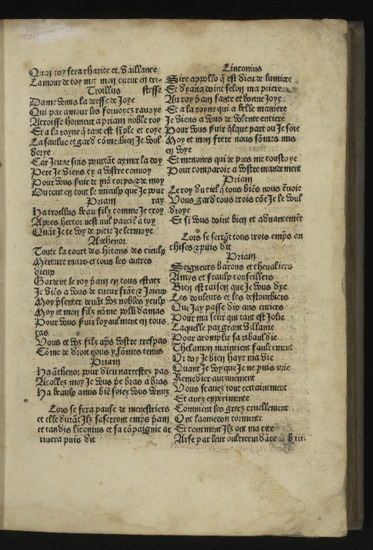 Quãt toy sera charite et Vaillance
Lamour de toy ma mon cueur en tri-
Troillus stesse
Dame venus la deesse de Joye
Qui par amour les
Accroisse honneur a priam noble roy
Et a la royne q̃ tant est siple et coye
La saulue et gard cõme bien Je voul
droye
Car Je ne suis pourtãt aymer la toy
Pere Je viens cy a vostre conuoy
Pour vous suir de mõ corps et de moy
Du tout en tout le mieulx que Je pour
Priam ray
Ha troillus beau filz cõme Je croy
Apres hector nest nul pareil a toy
Quãt Je te voy de pitie Je lermoye
Anthenor
Toute la court des haultains des cieulx
Mercure mars et tous les autres
dieux
Gardent le roy priam en tous estatz
Je viẽs a vo9 de cueur frãc et Joieux
Moy presenter deuãt voz nobles yeulx
Moy et mon filz nõme polidamas
Pour vous suir loyaulment en tous
cas
Vous et voz filz apres vostre trespas
Cõme de droit nous y sommes tenus
Priam
Ha anthenor pour dieu narrestez pas
Acollez moy Je vous pe bras a bras
Ha beaulx amis biẽ soiez vous venuz
Lors se fera pause de menestriers
et elle durãt Ilz sasserront empres priam
et tandis liconius et sa cõpaignie ar
riuera puis dit
Linconius
Sire appollo q̃ est dieu de lumiere
Et dyana doint selon ma priere
Au roy priam sante et bonne Joye
Et a la royne qui a belle maniere
Je viens a vous de volente entiere
Pour vous suir q̃lque part ou Je soie
Moy et mon frere nous sõmes mis
en voye
Et menones qui de pres me coustoye
Pour comparoir a vostre mandement
Priam
Le roy du ciel q̃ tous biẽs nous enuoie
Vous gard tous trois cõe Je le voul
droye
Et si vous doint bien et aduancement
Lors se serrõt tous trois empres an
chises et puis dit
Priam
Seigneurs barons et cheualiers
Amis et feaulx conseilliers
Bien est raison que Je vous dye
Les douleurs et les destourbiers
Que Jay passe dix ans entiers
Pour ma seur qui tant est Jolie
Laquelle par grant villanie
Pour acomplir sa ribauldie
Thelamon maintient faulcement
Or doy Je bien hayr ma vie
Quant Je voy que Je ne puis mie
Remedier aucunement
Vous sauez tout certainement
Et auez experimente
Comment les grecz cruellement
Ont laomedon tormente
Et comment Ilz ont ma cite
Arse par leur oultrecuidãce b iii